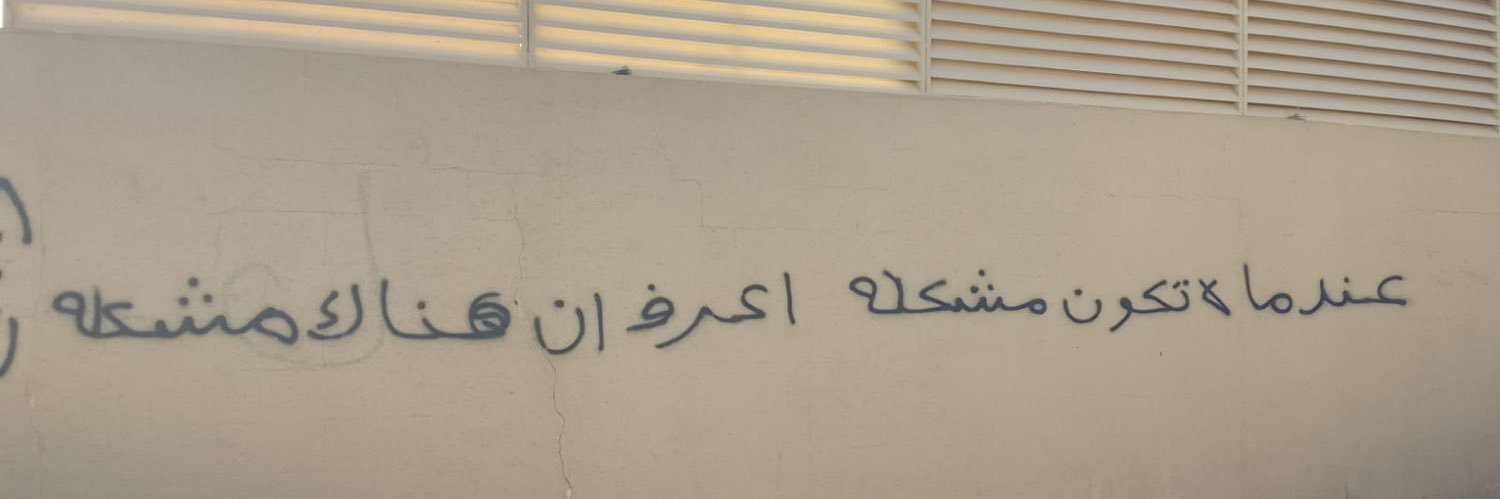 عندما لا تكون مشكله اعرف ان هناك مشكله